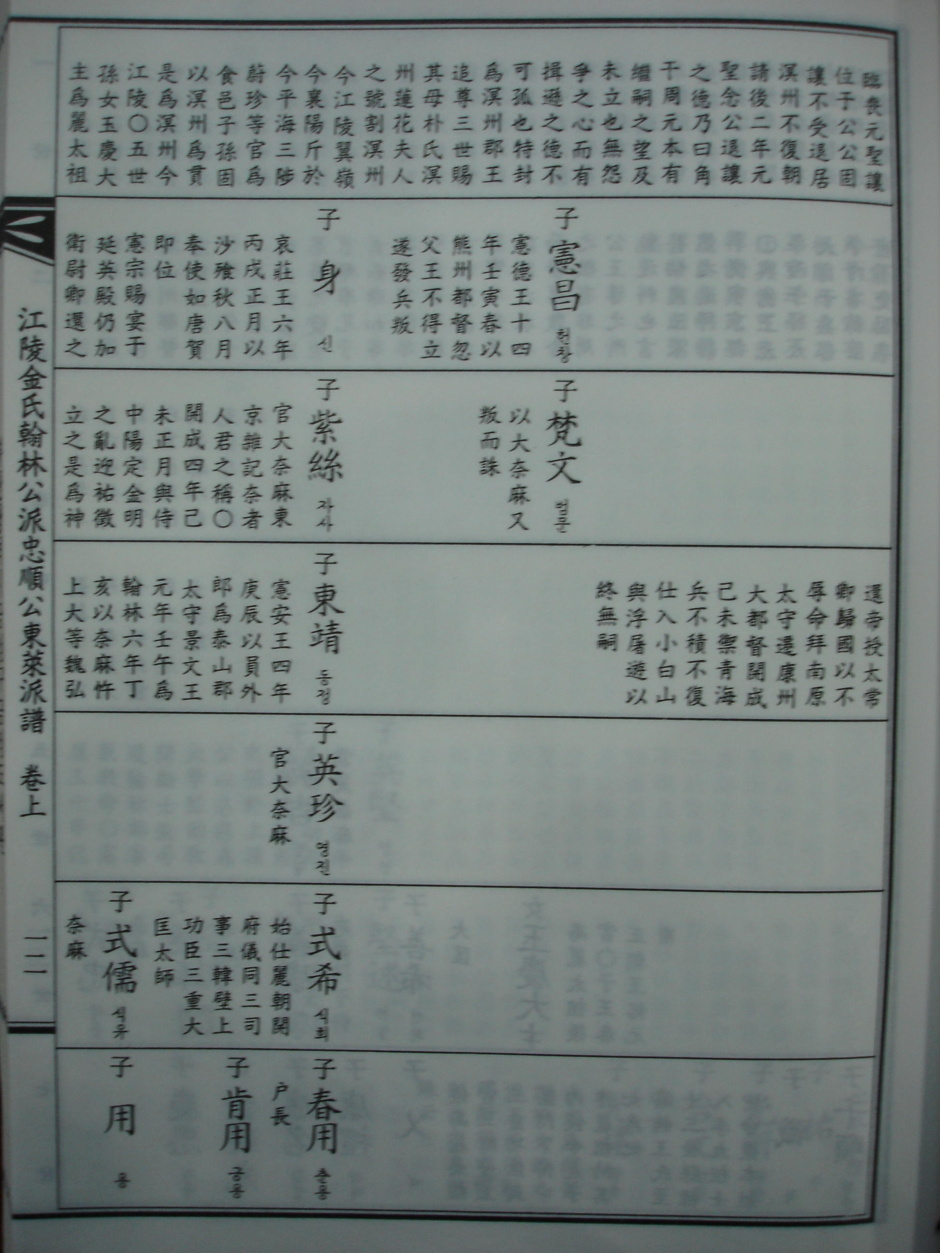 臨喪元聖讓
位于公公固
讓不受退居
溟州不復朝
請後二年元
聖念公退讓
之德乃曰角
干周元本有
繼嗣之望及
未立也無怨
爭之心而有
揖遜之德不
可孤也特封
爲溟州郡王
追尊三世賜
其母朴氏溟
州蓮花夫人
之號割溟州
今江陵翼嶺
今襄陽斤於
今平海三陟
蔚珍等官爲
食邑子孫因
以溟州爲貫
是爲溟州今
江陵〇五世
孫女玉慶大
主爲麗太祖
子 憲昌 헌창
憲德王十四
年壬寅春以
熊州都督忽
父王不得立
遂發兵叛
子 身 신
哀莊王六年
丙戌正月以
沙飡秋八月
奉使如唐賀
即位
憲宗賜宴于
延英殿仍加
衛尉卿還之
子 梵文 범문
以大奈麻又
叛而誅
子 紫絲 자사
官大奈麻東
京雜記奈者
人君之稱〇
開成四年己
未正月與侍
中陽定金明
之亂迎祐徵
立之是爲神
還帝授太常
卿歸國以不
辱命拜南原
太守遷康州
大都督開成
己未禦青海
兵不積不復
仕入小白山
與浮屠遊以
終無嗣
子 東靖 동정
憲安王四年
庚辰以員外
郎爲泰山郡
太守景文王
元年壬午爲
翰林六年丁
亥以奈麻忤
上大等魏弘
子 英珍 영진
官大奈麻
子 式希 식희
始仕麗朝開
府儀同三司
事三韓壁上
功臣三重大
匡太師
子 式儒 식유
奈麻
子 春用 춘용
戶長
子 肯用 긍용
子 用 용
江陵金氏翰林公派忠順公東萊派譜 卷上
一二